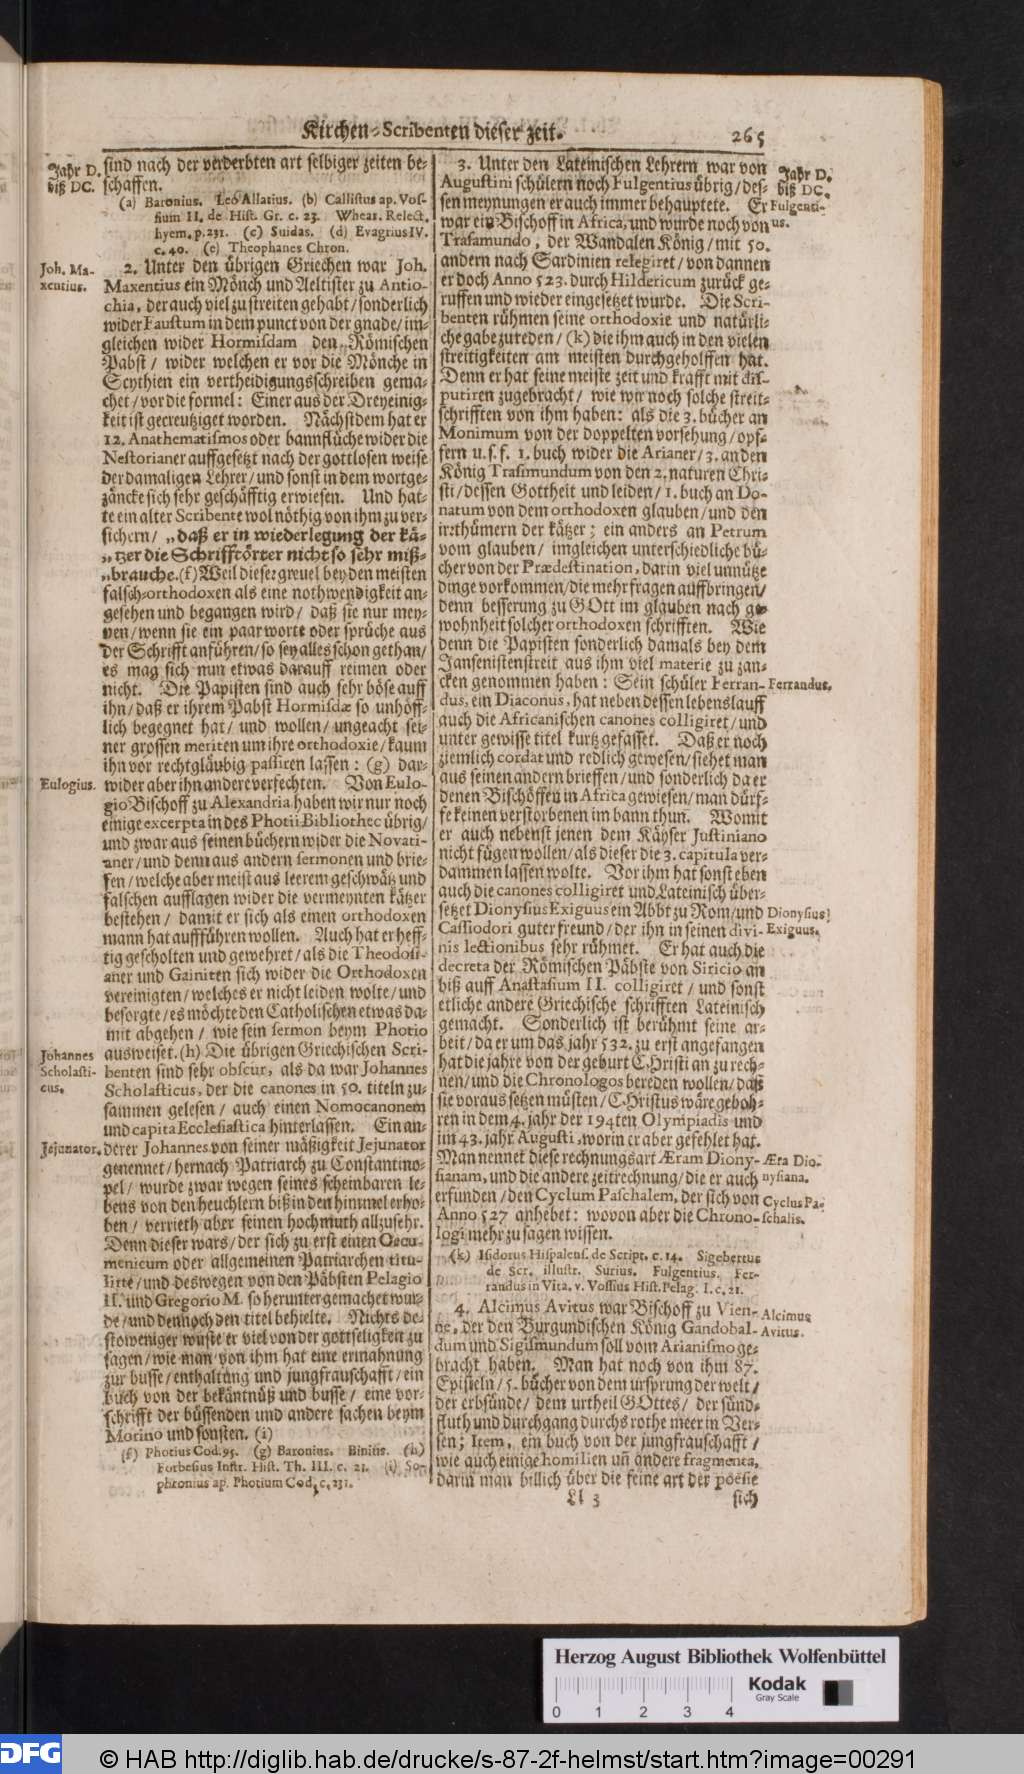 Kirchen-Scribenten dieser zeit. 265
Jahr D.
biß DC.
sind nach der verderbten art selbiger zeiten be-
schaffen.
(a) Baronius. Leo Allatius. (b) Callistus ap. Vos-
sium II. de Hist. Gr. c. 23. Whear. Relect.
hyem. p. 231. (c) Suidas. (d) Evagrius IV.
c. 40. (e) Theophanes Chron.
Joh. Ma-
xentius.
2. Unter den übrigen Griechen war Joh.
Maxentius ein Mönch und Aeltister zu Antio-
chia, der auch viel zu streiten gehabt / sonderlich
wider Faustum in dem punct von der gnade / im-
gleichen wider Hormisdam den Römischen
Pabst / wider welchen er vor die Mönche in
Scythien ein vertheidigungsschreiben gema-
chet / vor die formel: Einer aus der Dreyeinig-
keit ist gecreutziget worden. Nächstdem hat er
12. Anathematismos oder bannflüche wider die
Nestorianer auffgesetzt nach der gottlosen weise
der damaligen Lehrer / und sonst in dem wortge-
zäncke sich sehr geschäfftig erwiesen. Und hat-
te ein alter Scribente wol nöthig von ihm zu ver-
sichern / „daß er in wiederlegung der kä-
„tzer die Schrifftörter nicht so sehr miß-
„brauche. (f) Weil dieser greuel bey den meisten
falsch-orthodoxen als eine nothwendigkeit an-
gesehen und begangen wird / daß sie nur mey-
nen / wenn sie ein paar worte oder sprüche aus
der Schrifft anführen / so sey alles schon gethan /
es mag sich nun etwas darauff reimen oder
nicht. Die Papisten sind auch sehr böse auff
ihn / daß er ihrem Pabst Hormisdæ so unhöff-
lich begegnet hat / und wollen / ungeacht sei-
ner grossen meriten um ihre orthodoxie / kaum
ihn vor rechtgläubig passiren lassen: (g) dar-
wider aber ihn andere verfechten. Von Eulo-
Eulogius.
gio Bischoff zu Alexandria haben wir nur noch
einige excerpta in des Photii Bibliothec übrig /
und zwar aus seinen büchern wider die Novati-
aner / und denn aus andern sermonen und brie-
fen / welche aber meist aus leerem geschwätz und
falschen aufflagen wider die vermeynten kätzer
bestehen / damit er sich als einen orthodoxen
mann hat auffführen wollen. Auch hat er heff-
tig gescholten und gewehret / als die Theodosi-
aner und Gainiten sich wider die Orthodoxen
vereinigten / welches er nicht leiden wolte / und
besorgte / es möchte den Catholischen etwas da-
mit abgehen / wie sein sermon beym Photio
ausweiset. (h) Die übrigen Griechischen Scri-
Johannes
Scholasti-
cus.
benten sind sehr obscur, als da war Johannes
Scholasticus, der die canones in 50. titeln zu-
sammen gelesen / auch einen Nomocanonem
und capita Ecclesiastica hinterlassen. Ein an-
Jejunator.
derer Johannes von seiner mäßigkeit Jejunator
genennet / hernach Patriarch zu Constantino-
pel / wurde zwar wegen seines scheinbaren le-
bens von den heuchlern biß in den himmel erho-
ben / verrieth aber seinen hochmuth allzusehr.
Denn dieser wars / der sich zu erst einen Oecu-
menicum oder allgemeinen Patriarchen titu-
lirte / und deswegen von den Päbsten Pelagio
II. und Gregorio M. so herunter gemachet wur-
de / und dennoch den titel behielte. Nichts de-
stoweniger wuste er viel von der gottseligkeit zu
sagen / wie man von ihm hat eine ermahnung
zur busse / enthaltung und jungfrauschafft / ein
buch von der bekäntnüß und busse / eine vor-
schrifft der büssenden und andere sachen beym
Morino und sonsten. (i)
(f) Photius Cod. 95. (g) Baronius. Binius. (h)
Forbesius Instr. Hist. Th. III. c. 21. (i) So-
phronius ap. Photium Cod. c. 231.
3. Unter den Lateinischen Lehrern war von
Jahr D.
biß DC.
Augustini schülern noch Fulgentius übrig / des-
sen meynungen er auch immer behauptete. Er
Fulgenti-
us.
war ein Bischoff in Africa, und wurde noch von
Trasamundo, der Wandalen König / mit 50.
andern nach Sardinien relegiret / von dannen
er doch Anno 523. durch Hildericum zurück ge-
ruffen und wieder eingesetzet wurde. Die Scri-
benten rühmen seine orthodoxie und natürli-
che gabe zu reden / (k) die ihm auch in den vielen
streitigkeiten am meisten durchgeholffen hat.
Denn er hat seine meiste zeit und krafft mit dis-
putiren zugebracht / wie wir noch solche streit-
schrifften von ihm haben: als die 3. bücher an
Monimum von der doppelten vorsehung / opf-
fern u. s. f. 1. buch wider die Arianer / 3. an den
König Trasimundum von den 2. naturen Chri-
sti / dessen Gottheit und leiden / 1. buch an Do-
natum von dem orthodoxen glauben / und den
irrthümern der kätzer; ein anders an Petrum
vom glauben / imgleichen unterschiedliche bü-
cher von der Prædestination, darin viel unnütze
dinge vorkommen / die mehr fragen auffbringen /
denn besserung zu GOtt im glauben nach ge-
wohnheit solcher orthodoxen schrifften. Wie
denn die Papisten sonderlich damals bey dem
Jansenistenstreit aus ihm viel materie zu zan-
cken genommen haben: Sein schüler Ferran-
Ferrandus.
dus, ein Diaconus, hat neben dessen lebenslauff
auch die Africanischen canones colligiret / und
unter gewisse titel kurtz gefasset. Daß er noch
ziemlich cordat und redlich gewesen / siehet man
aus seinen andern brieffen / und sonderlich da er
denen Bischöffen in Africa gewiesen / man dürf-
fe keinen verstorbenen im bann thun. Womit
er auch nebenst jenen dem Käyser Justiniano
nicht fügen wollen / als dieser die 3. capitula ver-
dammen lassen wolte. Vor ihm hat sonst eben
auch die canones colligiret und Lateinisch über-
setzet Dionysius Exiguus ein Abbt zu Rom / und
Dionysius
Exiguus.
Cassiodori guter freund / der ihn in seinen divi-
nis lectionibus sehr rühmet. Er hat auch die
decreta der Römischen Päbste von Siricio an
biß auff Anastasium II. colligiret / und sonst
etliche andere Griechische schrifften Lateinisch
gemacht. Sonderlich ist berühmt seine ar-
beit / da er um das jahr 532. zu erst angefangen
hat die jahre von der geburt CHristi an zu rech-
nen / und die Chronologos bereden wollen / daß
sie voraus setzen müsten / CHristus wäre geboh-
ren in dem 4. jahr der 194ten Olympiadis und
im 43. jahr Augusti, worin er aber gefehlet hat.
Man nennet diese rechnungsart Æram Diony-
Æra Dio-
nysiana.
sianam, und die andere zeitrechnung / die er auch
erfunden / den Cyclum Paschalem, der sich von
Cyclus Pa-
schalis.
Anno 527 anhebet: wovon aber die Chrono-
logi mehr zu sagen wissen.
(k) Isidorus Hispalens. de Script. c. 14. Sigebertus
de Scr. illustr. Surius. Fulgentius. Fer-
randus in Vita. v. Vossius Hist. Pelag. I. c. 21.
4. Alcimus Avitus war Bischoff zu Vien-
Alcimus
Avitus.
ne, der den Burgundischen König Gandobal-
dum und Sigismundum soll vom Arianismo ge-
bracht haben. Man hat noch von ihm 87.
Episteln / 5. bücher von dem ursprung der welt /
der erbsünde / dem urtheil GOttes / der sünd-
fluth und durchgang durchs rothe meer in Ver-
sen; Item, ein buch von der jungfrauschafft /
wie auch einige homilien uñ andere fragmenta,
darin man billich über die feine art der poësie
Ll 3 sich
Herzog August Bibliothek Wolfenbüttel
0 1 2 3 4
Kodak
Gray Scale
DFG © HAB http://diglib.hab.de/drucke/s-87-2f-helmst/start.htm?image=00291